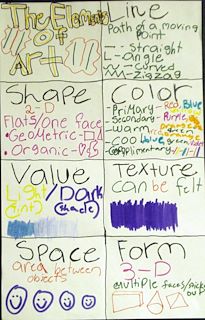 The Elements
of
Art
Line
Path of a moving
Point
Straight
Angle
Curved
Zigzag
Shape
2-D
Flats/one face
Geometric
Organic
Color
Primary- Red, Blue
Secondary-
Purple
orange
green
Warm
orange
Coo
blue, green
Value
Light/Dark
(tint) (shade)
Texture
can be felt
Space
area between
objects
Form
3-D
multiple faces/
out